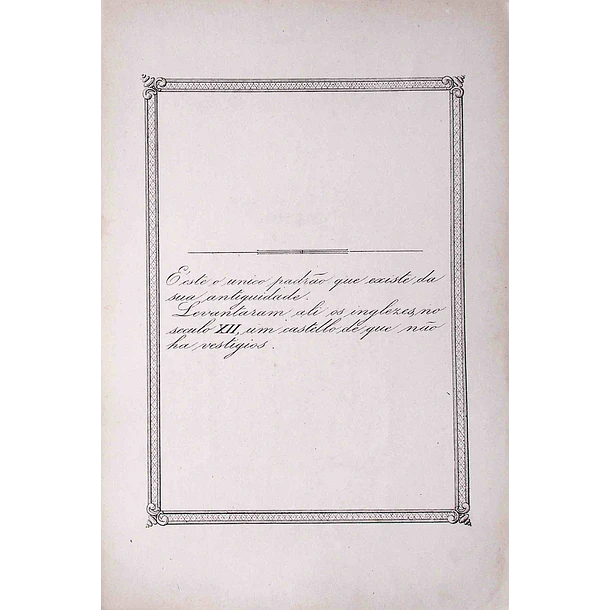 É este o unico padrão que existe da
sua antiguidade.
Levantaram ali os inglezes, no
seculo XII, um castello, de que não
ha vestigios.